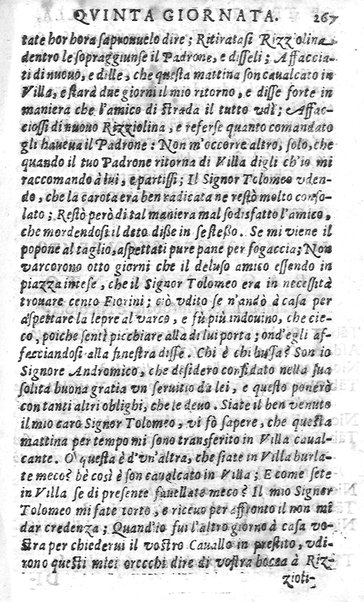 QVINTA GIORNATA. 267
tate hor hora sapronuelo dire; Ritiratasi Rizzolina
dentro le sopraggiunse il Padrone, e disseli; Affaccia
ti di nuouo, e dille, che questa mattina son caualcato in
Villa, e starà due giorni il mio ritorno, e disse forte in
maniera che l'amico di strada il tutto vdì; Affac
ciossi di nuouo Rizziolina, e referse quanto comandato
gli haueua il Padrone: Non m'occorre altro, solo, che
quando il tuo Padrone ritorna di Villa digli ch'io mi
raccomando à lui, e partissi; Il Signor Tolomeo vden-
do, che la carota era ben radicata ne restò molto conso-
lato; Restò però di tal maniera mal sodisfatto l'amico,
che mordendosi il deto disse in se stesso. Se mi viene il
popone al taglio, aspettati pure pane per fogaccia; Non
varcorono otto giorni che il deluso amico essendo in
piazza intese, che il Signor Tolomeo era in necessità
trouare cento Fiorini; ciò vdito se n'andò à casa per
aspettare la lepre al varco, e fù più indouino, che cie-
co, poiche sentì picchiare alla di lui porta; ond'egli af-
facciandosi alla finestra disse. Chi è chi bussa? Son io
Signore Andromico, che desidero confidato nella sua
solita buona gratia vn seruitio da lei, e questo ponerò
con tanti altri oblighi, che le deuo. Siate il ben venuto
il mio caro Signor Tolomeo, vi fò sapere, che questa
mattina per tempo mi sono transferito in Villa caual-
cante. O questa è d'vn'altra, che siate in Villa burla-
te meco? bè così è son caualcato in Villa; E come sete
in Villa se di presente fauellate meco? Il mio Signor
Tolomeo mi fate torto, e riceuo per affronto il non mi
dar credenza; Quand'io fui l'altro giorno à casa vo-
stra per chiederui il vostro Cauallo in prestito, vdi-
rono questi miei orecchi dire di vostra bocca à Riz-
zioli-